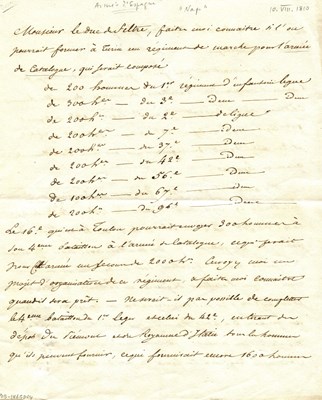 Armée d'Espagne "Nap" 10. VIII. 1810
Monsieur le duc de Feltre, faites moi connaître si l'on
pourrait former à Turin un régiment de marche pour l'armée
de Catalogne, qui serait composé
de 200 hommes du 1er régiment d'infanterie légère
de 300 hes — du 3e — Dme — Dme
de 200 hes — du 2e — de ligne
de 200 hes — du 7e — Dme
de 200 hes — du 37e — Dme
de 200 hes — du 42e — Dme
de 200 hes — du 56e — Dme
de 100 hes — du 67e — Dme
de 200 hes — du 96e — Dme
Le 16e qui est à Toulon pourrait envoyer 300 hommes à
son 4eme bataillon à l'armée de Catalogne, ce qui ferait
pour l'armée un secours de 2000 hes. Envoyez moi un
projet d'organisation de ce régiment, et faites moi connaître
quand il sera prêt. Ne serait-il pas possible de compléter
le 4eme bataillon du 1er Léger et celui du 42e, en tirant des
dépôts du Piémont et du Royaume d'Italie tous les hommes
qu'ils peuvent fournir, ce qui fournirait encore 1600 hommes